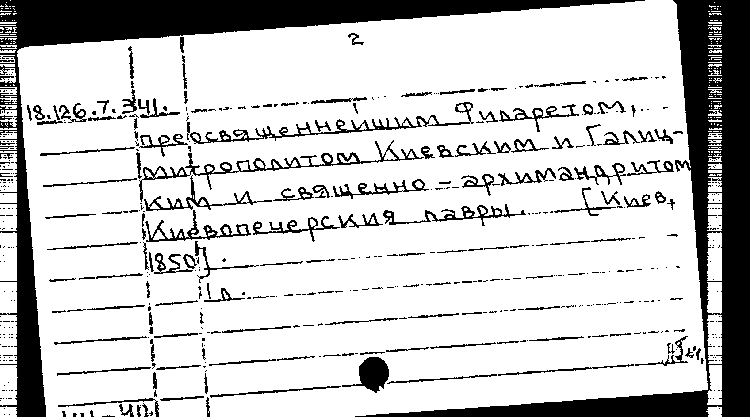 2
18.126.7.341.
преосвященнейшим Филаретом,
митрополитом Киевским и Галиц-
ким и священно-архимандритом
Киевопечерския лавры. [Киев,
1850].
1 л.